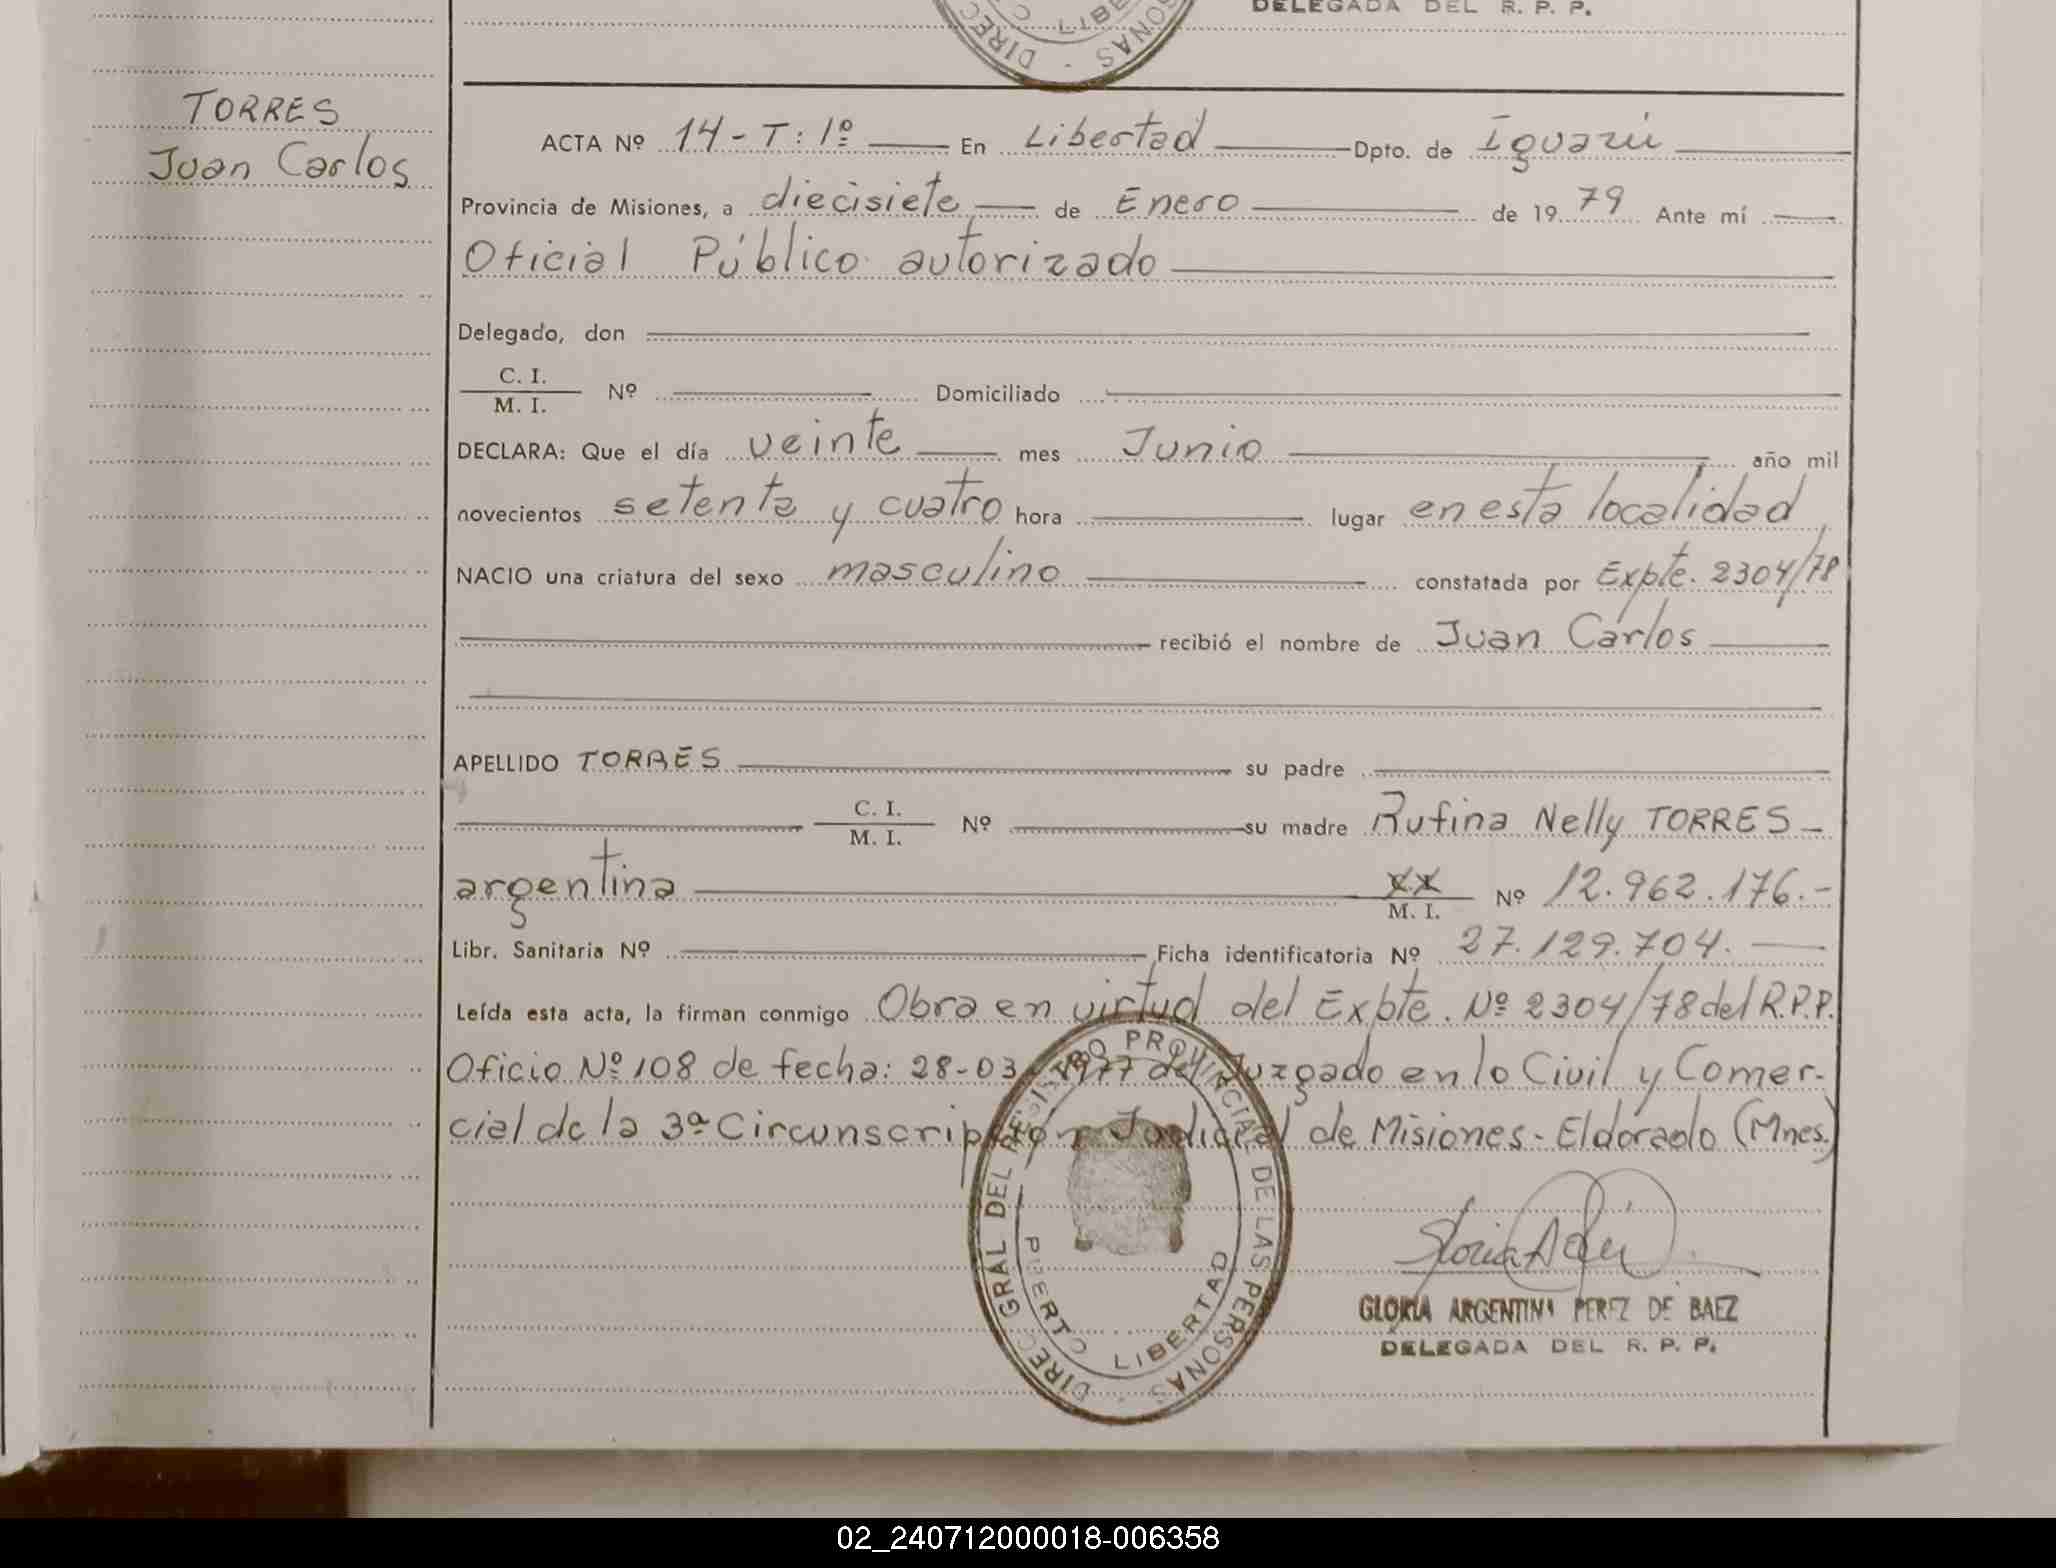 DELEGADA DEL R. P. P.
TORRES
Juan Carlos
ACTA Nº 14 - T: 1º En Libertad Dpto. de Iguazú
Provincia de Misiones, a diecisiete de Enero de 19 79 Ante mí
Oficial Público autorizado
Delegado, don
C. I.
M. I. Nº Domiciliado
DECLARA: Que el día veinte mes Junio año mil
novecientos setenta y cuatro hora lugar en esta localidad
NACIO una criatura del sexo masculino constatada por Expte. 2304/78
recibió el nombre de Juan Carlos
APELLIDO TORRES su padre
C. I.
M. I. Nº su madre Rufina Nelly TORRES -
argentina M. I. Nº 12.962.176.-
Libr. Sanitaria Nº Ficha identificatoria Nº 27.129.704.
Leída esta acta, la firman conmigo Obra en virtud del Expte. Nº 2304/78 del R.P.P.
Oficio Nº 108 de fecha: 28-03-1977 del Juzgado en lo Civil y Comer-
cial de la 3ª Circunscripción Judicial de Misiones - Eldorado (Mnes.)
DIREC. GRAL DEL REGISTRO PROVINCIAL DE LAS PERSONAS
PUERTO LIBERTAD
GLORIA ARGENTINA PEREZ DE BAEZ
DELEGADA DEL R. P. P.
02_240712000018-006358